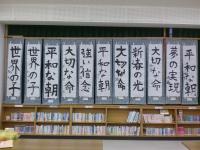 世界の子
世界の子
平和な朝
大切な命
強い信念
平和な朝
大切な命
新春の光
大切な命
夢の実現
平和な朝